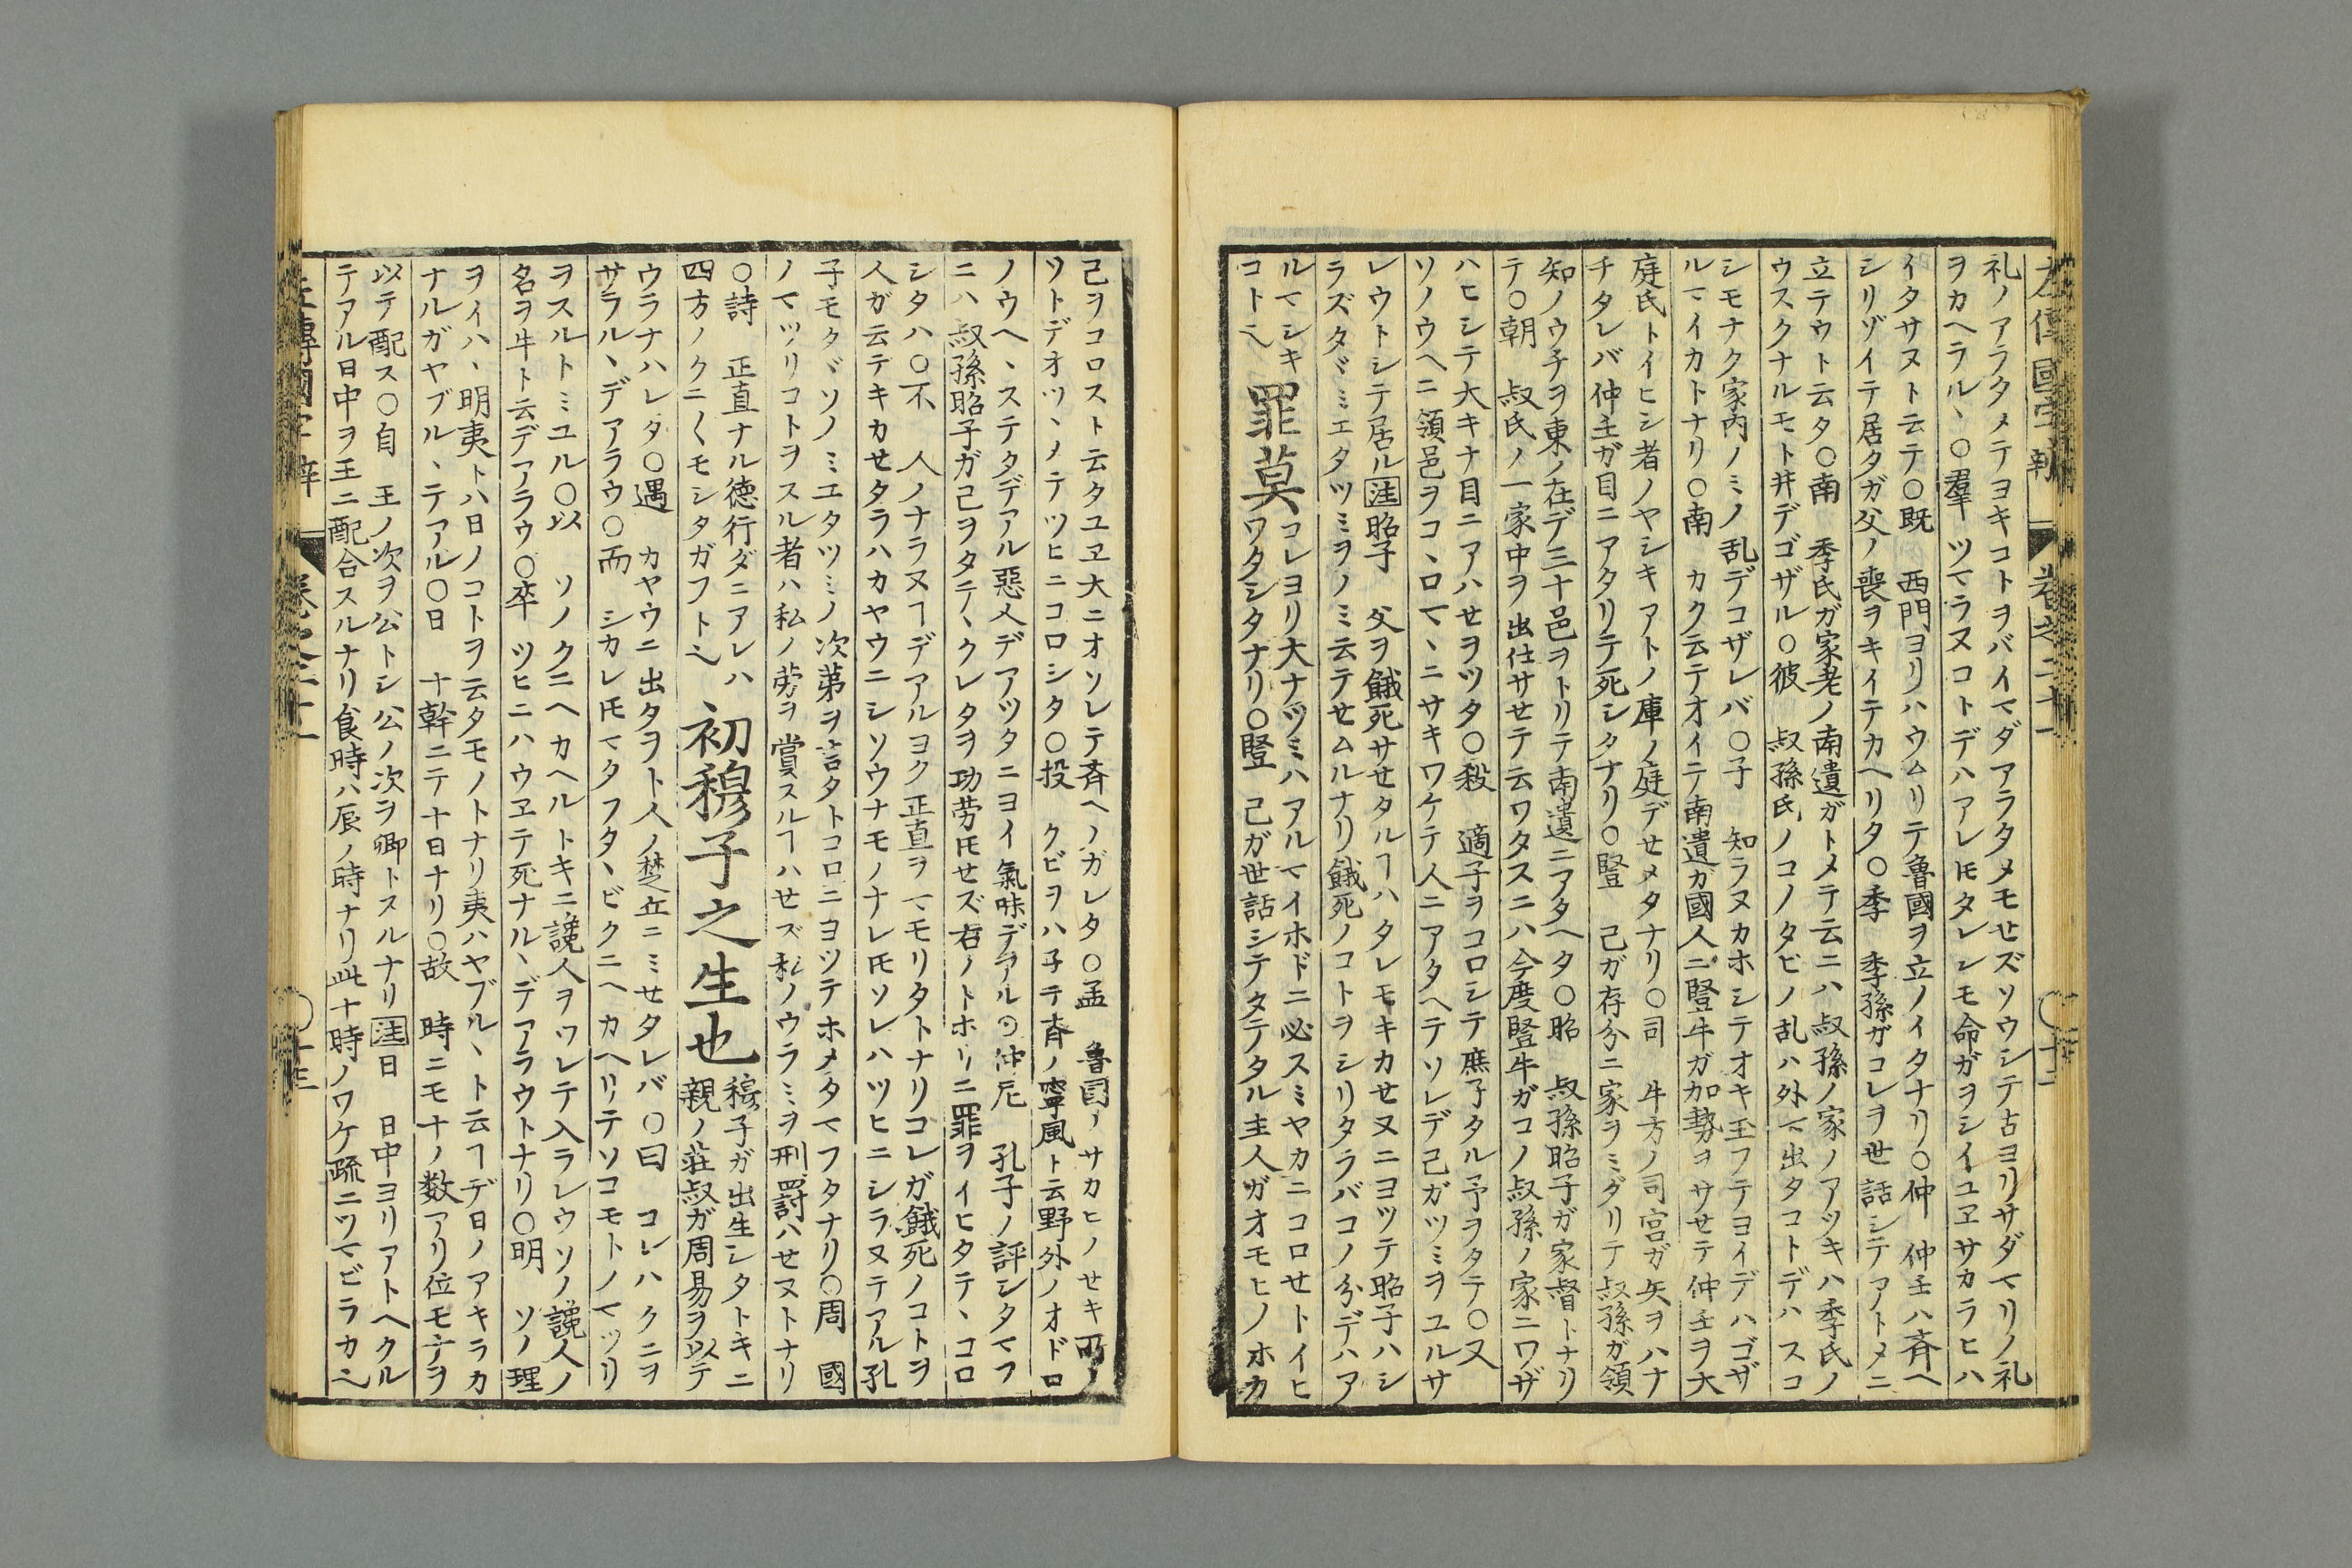 左傳國字辯 卷之二十一 〇十二
礼ノアラタメテヨキコトヲバイマダアラタメモせズソウシテ古ヨリサダマリノ礼
ヲカヘラル丶〇羣 ツマラヌコトデハアレ𪜈タレシモ命ガヲシイユヱサカラヒハ
イタサヌト云テ〇既 西門ヨリハウムリテ魯國ヲ立ノイタナリ〇仲 仲壬ハ斉ヘ
シリゾイテ居タガ父ノ喪ヲキイテカヘリタ〇季 季孫ガコレヲ世話シテアトメニ
立テウト云タ〇南 季氏ガ家老ノ南遺ガトメテ云ニハ叔孫ノ家ノアツキハ季氏ノ
ウスクナルモト井デゴザル〇彼 叔孫氏ノコノタビノ乱ハ外マ出タコトデハスコ
シモナク家内ノミノ乱デコザレバ〇子 知ラヌカホシテオキ玉フテヨイデハゴザ
ルマイカトナリ〇南 カク云テオイテ南遺ガ國人ニ豎牛ガ加勢ヲサせテ仲壬ヲ大
庭氏トイヒシ者ノヤシキアトノ庫ノ庭デせメタナリ〇司 牛方ノ司宮ガ矢ヲハナ
チタレバ仲壬ガ目ニアタリテ死シタナリ〇豎 己ガ存分ニ家ヲミダリテ叔孫ガ領
知ノウ子ヲ東ノ在デ三十邑ヲトリテ南遺ニアタヘタ〇昭 叔孫昭子ガ家督トナリ
テ〇朝 叔氏ノ一家中ヲ出仕サせテ云ワタスニハ今度豎牛ガコノ叔孫ノ家ニワザ
ハヒシテ大キナ目ニアハせヲツタ〇殺 適子ヲコロシテ庶子タル予ヲタテ〇又
ソノウヘニ領邑ヲコ丶ロマ丶ニサキワケテ人ニアタヘテソレデ己ガツミヲユルサ
レウトシテ居ル注昭子 父ヲ餓死サせタルヿハタレモキカせヌニヨツテ昭子ハシ
ラズタヾミエタツミヲノミ云テせムルナリ餓死ノコトヲシリタラバコノ分デハア
ルマシキ
コトヘ 罪莫 コレヨリ大ナヅミハアルマイホドニ必スミヤカニコロせトイヒ
ワタシタナリ〇豎 己ガ世話シテタテタル主人ガオモヒノホカ
己ヲコロスト云タユヱ大ニオソレテ斉ヘノガレタ〇孟 魯國ノサカヒノせキ所ノ
ソトデオツ丶メテツヒニコロシタ〇投 クビヲハ子テ斉ノ寧風ト云野外ノオドロ
ノウヘ丶ステタデアル惡人デアツタニヨイ氣味デアル〇仲尼 孔子ノ評シタマフ
ニハ叔孫昭子ガ己ヲタテ丶クレタヲ功労𪜈せズ右ノトホリニ罪ヲイヒタテ丶コロ
シタハ〇不 人ノナラヌヿデアルヨク正直ヲマモリタトナリコレガ餓死ノコトヲ
人ガ云テキカせタラハカヤウニシソウナモノナレ𪜈ソレハツヒニシラヌテアル孔
子モタヾソノミユタツミノ次第ヲ言タトコロニヨツテホメタマフタナリ〇周 國
ノマツリコトヲスル者ハ私ノ労ヲ賞スルヿハせズ私ノウラミヲ刑罰ハせヌトナリ
〇詩 正直ナル徳行ダニアレハ
四方ノクニ〱モシタガフトヘ 初穆子之生也 穆子ガ出生シタトキニ
親ノ荘叔ガ周易ヲ以テ
ウラナハレタ〇遇 カヤウニ出タヲト人ノ楚丘ニミせタレバ〇曰 コレハクニヲ
サラル丶デアラウ〇而 シカレ𪜈マタフタ丶ビクニヘカヘリテソコモトノマツリ
ヲスルトミユル〇以 ソノクニヘカヘルトキニ讒人ヲツレテ入ラレウソノ讒人ノ
名ヲ牛ト云デアラウ〇卒 ツヒニハウヱテ死ナル丶デアラウトナリ〇明 ソノ理
ヲイハ丶明夷ト八日ノコトヲ云タモノトナリ夷ハヤブル丶ト云ヿデ日ノアキラカ
ナルガヤブル丶テアル〇日 十幹ニテ十日ナリ〇故 時ニモナノ数アリ位モ十ヲ
以テ配ス〇自 王ノ次ヲ公トシ公ノ次ヲ卿トスルナリ注日 日中ヨリアトヘクル
テアル日中ヲ王ニ配合スルナリ食時ハ辰ノ時ナリ此十時ノワケ疏ニツマビラカヘ